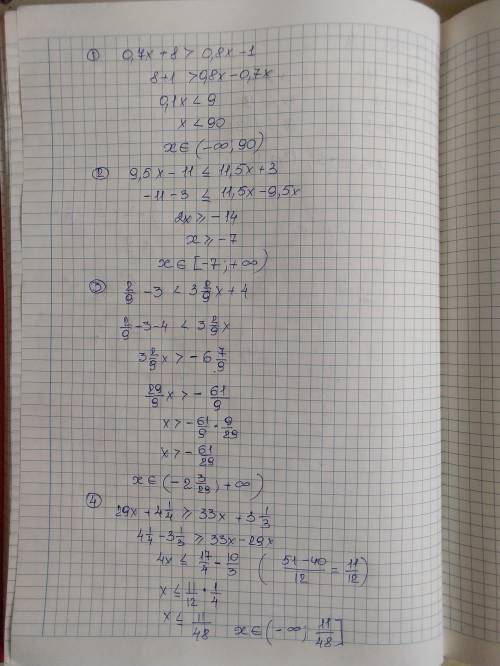 ① 0,7x + 8 > 0,8x - 1
8+1 > 0,8x - 0,7x
0,1x < 9
x < 90
x ∈ (-∞; 90)
② 9,5x - 11 ≤ 11,5x + 3
-11 - 3 ≤ 11,5x - 9,5x
2x ≥ -14
x ≥ -7
x ∈ [-7; +∞)
③ 2/9 - 3 < 3 2/9 x + 4
2/9 - 3 - 4 < 3 2/9 x
3 2/9 x > -6 7/9
29/9 x > - 61/9
x > - 61/9 · 9/29
x > - 61/29
x ∈ (-2 3/29; +∞)
④ 29x + 4 1/4 ≥ 33x + 3 1/3
4 1/4 - 3 1/3 ≥ 33x - 29x
4x ≤ 17/4 - 10/3 ( 51-40/12 = 11/12 )
x ≤ 11/12 · 1/4
x ≤ 11/48 x ∈ (-∞; 11/48]